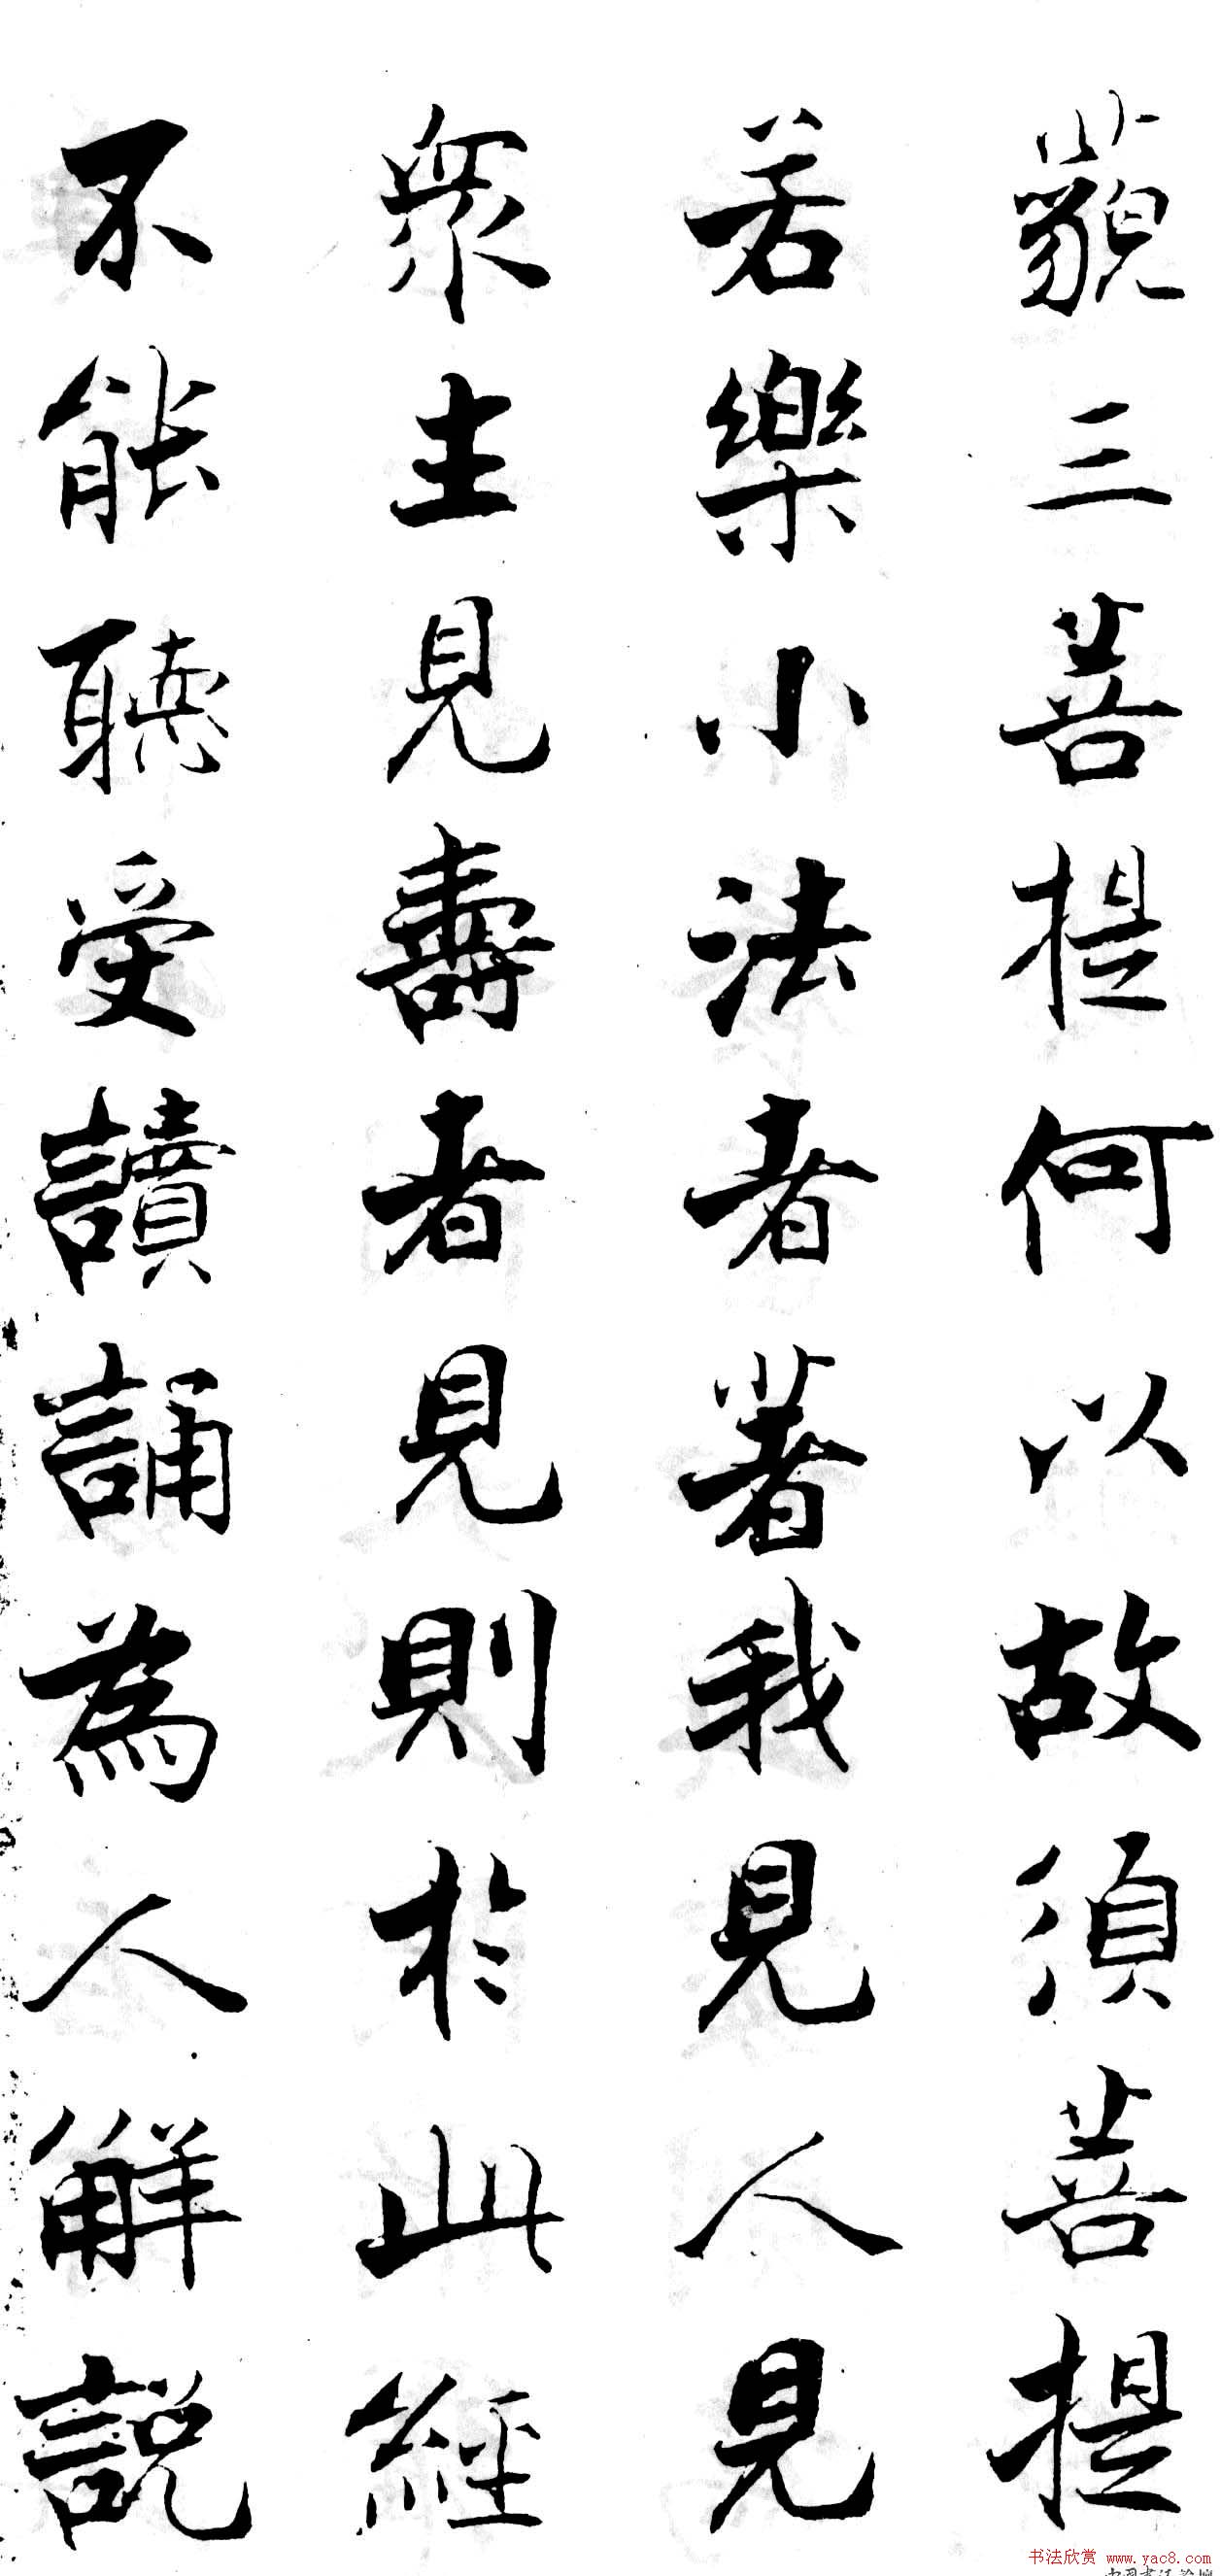 藐三菩提何以故須菩提
若樂小法者著我見人見
衆生見壽者見則於此經
不能聽受讀誦為人解説
书法欣赏 www.yac8.com